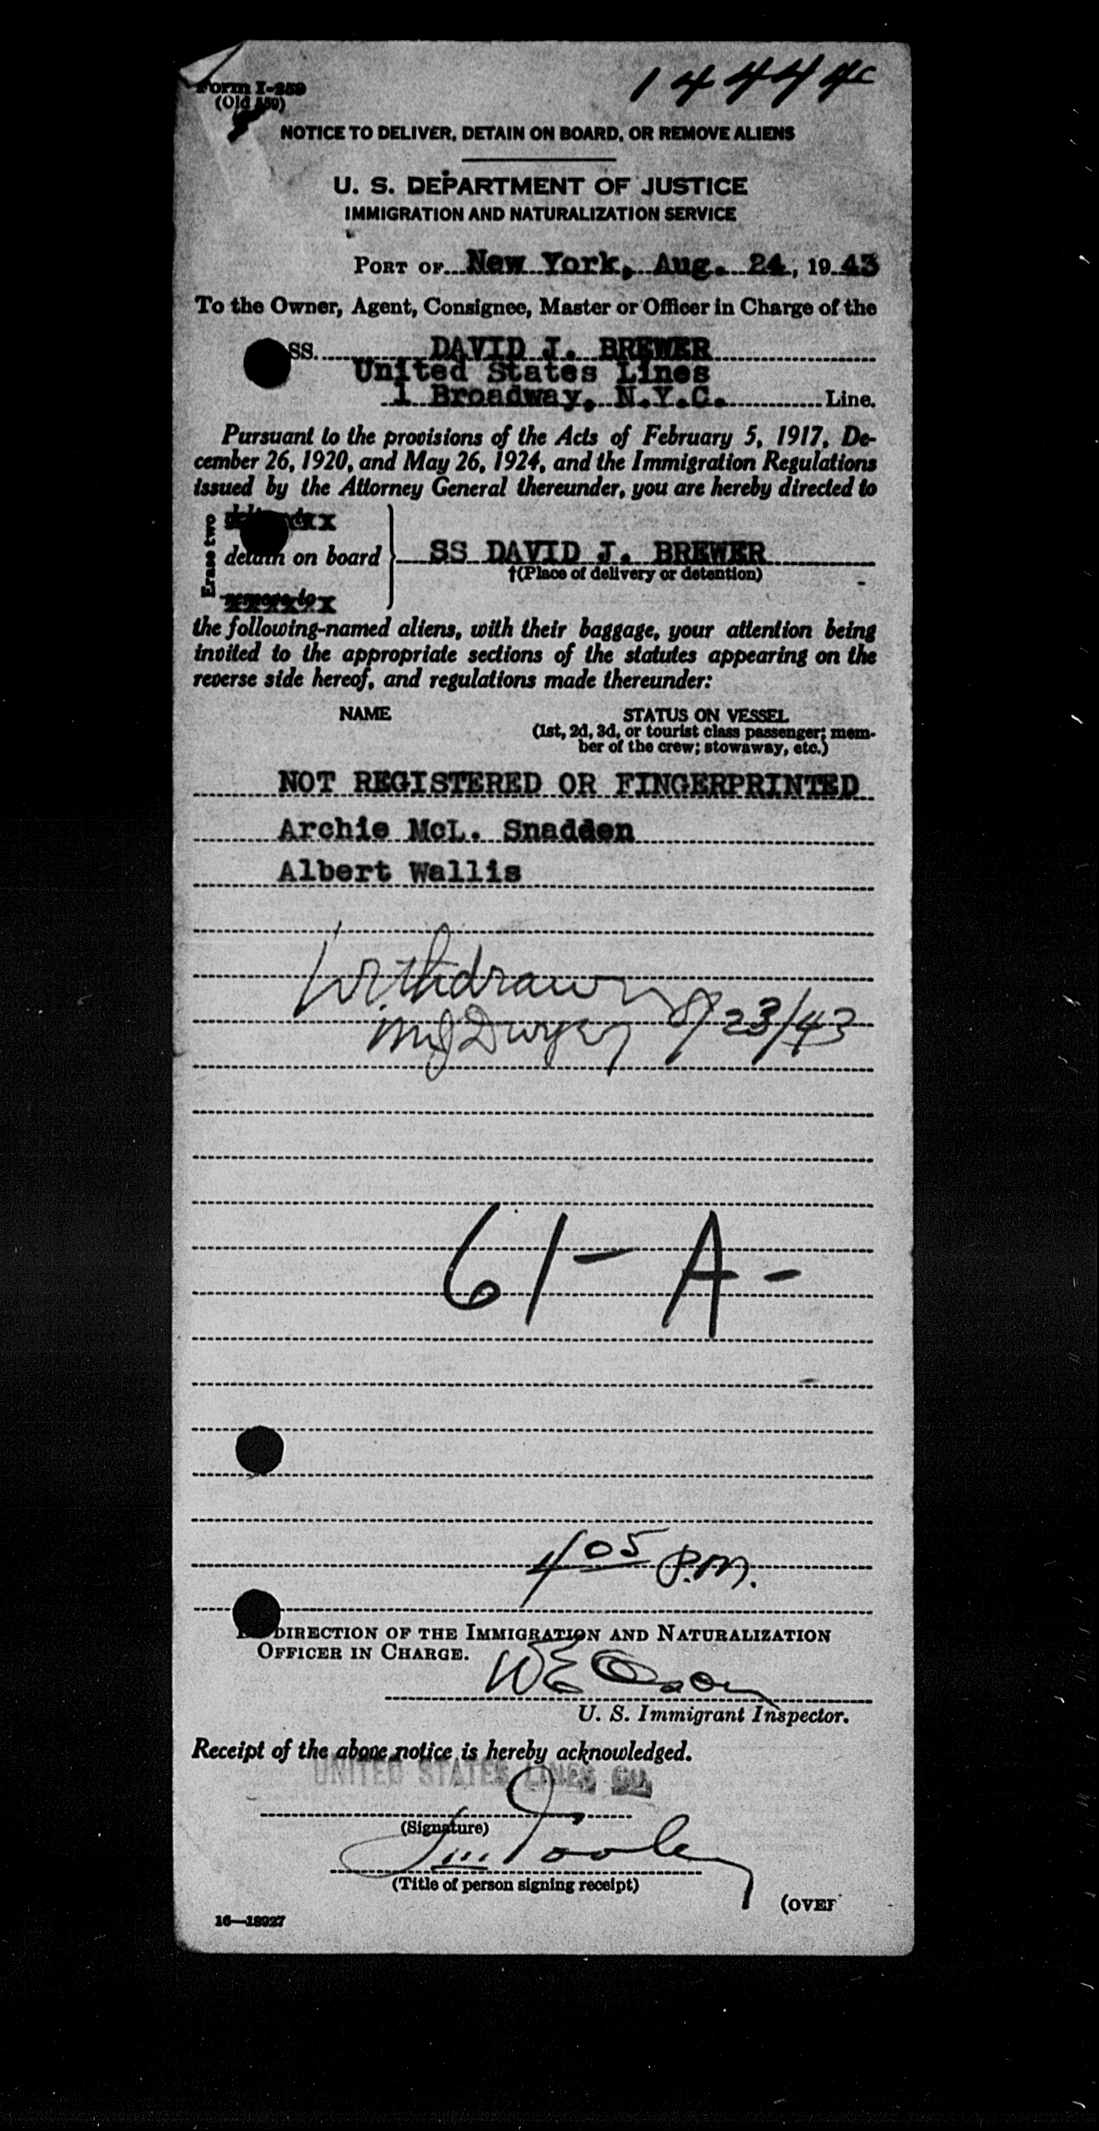 14444
Form I-259
(Old 559)
NOTICE TO DELIVER, DETAIN ON BOARD, OR REMOVE ALIENS
U. S. DEPARTMENT OF JUSTICE
IMMIGRATION AND NATURALIZATION SERVICE
PORT OF New York, Aug. 24, 1943
To the Owner, Agent, Consignee, Master or Officer in Charge of the
SS. DAVID J. BREWER
United States Lines
1 Broadway, N.Y.C. Line.
Pursuant to the provisions of the Acts of February 5, 1917, De-
cember 26, 1920, and May 26, 1924, and the Immigration Regulations
issued by the Attorney General thereunder, you are hereby directed to
Erase two
detain on board SS DAVID J. BREWER
†(Place of delivery or detention)
remove to
the following-named aliens, with their baggage, your attention being
invited to the appropriate sections of the statutes appearing on the
reverse side hereof, and regulations made thereunder:
NAME STATUS ON VESSEL
(1st, 2d, 3d, or tourist class passenger; mem-
ber of the crew; stowaway, etc.)
NOT REGISTERED OR FINGERPRINTED
Archie McL. Snadden
Albert Wallis
Withdrawn
MJ Dwyer 8/23/43
61-A-
4 05 P.M.
DIRECTION OF THE IMMIGRATION AND NATURALIZATION
OFFICER IN CHARGE.
U. S. Immigrant Inspector.
Receipt of the above notice is hereby acknowledged.
UNITED STATES LINES CO.
(Signature)
(Title of person signing receipt)
(OVER
16—18927